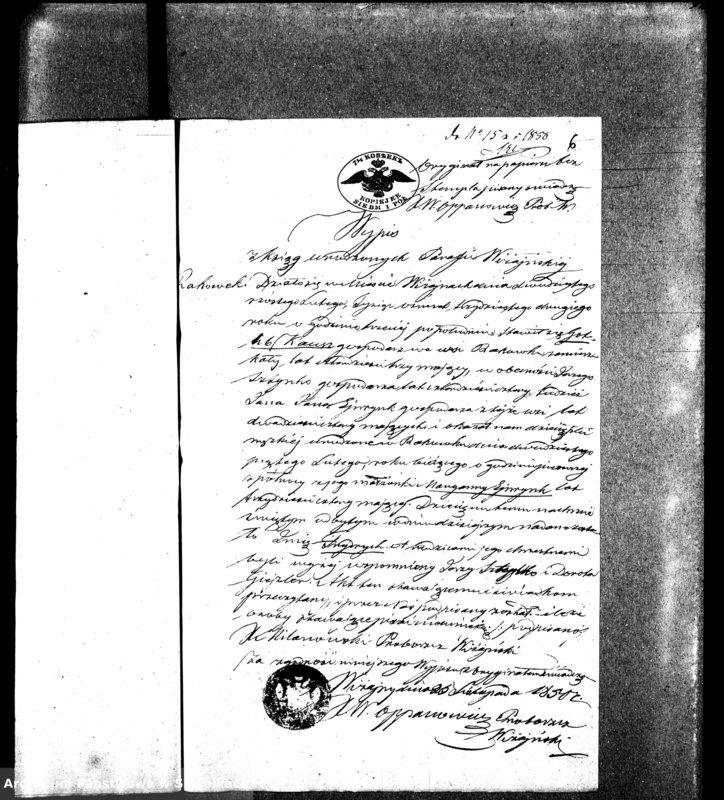 do Nr 15 z r 1850
6
7½ KOПѢЕКЪ
KOPIJEK
SIEDM I PÓŁ
Oryginał na papierze bez
stempla pisany świadczę
X W Oppanowicz Prob W.
Wypis
z Ksiąg urodzonych Parafii Wiżajńskiej
Rakowski Działo się w mieście Wiżajnach dnia dwudziestego
szóstego Lutego, Tysiąc ośmset trzydziestego drugiego
roku o godzinie trzeciej po południu. Stawił się Got-
Kausz gospodarz we wsi Rakowku zamiesz-
kały, lat czterdzieści trzy mający, w obecności Jerzego
gospodarza lat czterdzieści cztery, tudzież
Jana gospodarza z tejże wsi lat
dwadzieścia cztery mających, i okazał nam dziecię płci
męskiej urodzone w Rakowku dnia dwudziestego
piątego Lutego, roku bieżącego o godzinie pierwszej
z północy z jego małżonki Maryanny Ejnryuk lat
trzydzieści cztery mającej. Dziecięciu temu na chrzcie
świętym odbytym w dniu dzisiejszym nadane zosta-
ło Imię Frydrych. A rodzicami jego chrzestnemi
byli wyżej wspomniony Jerzy i Dorota
Akt ten stawającemu i świadkom
przeczytany, i przez Nas podpisany został, ileże
osoby stawające pisać nieumieją: podpisano
X. Milanowski Proboszcz Wiżajński
Za zgodność niniejszego Wypisu z oryginałem świadczę
Wiżajny dnia 25 Listopada 1850 r.
X W. Oppanowicz Proboszcz
Wiżajński
Archiwum Państwowe w S